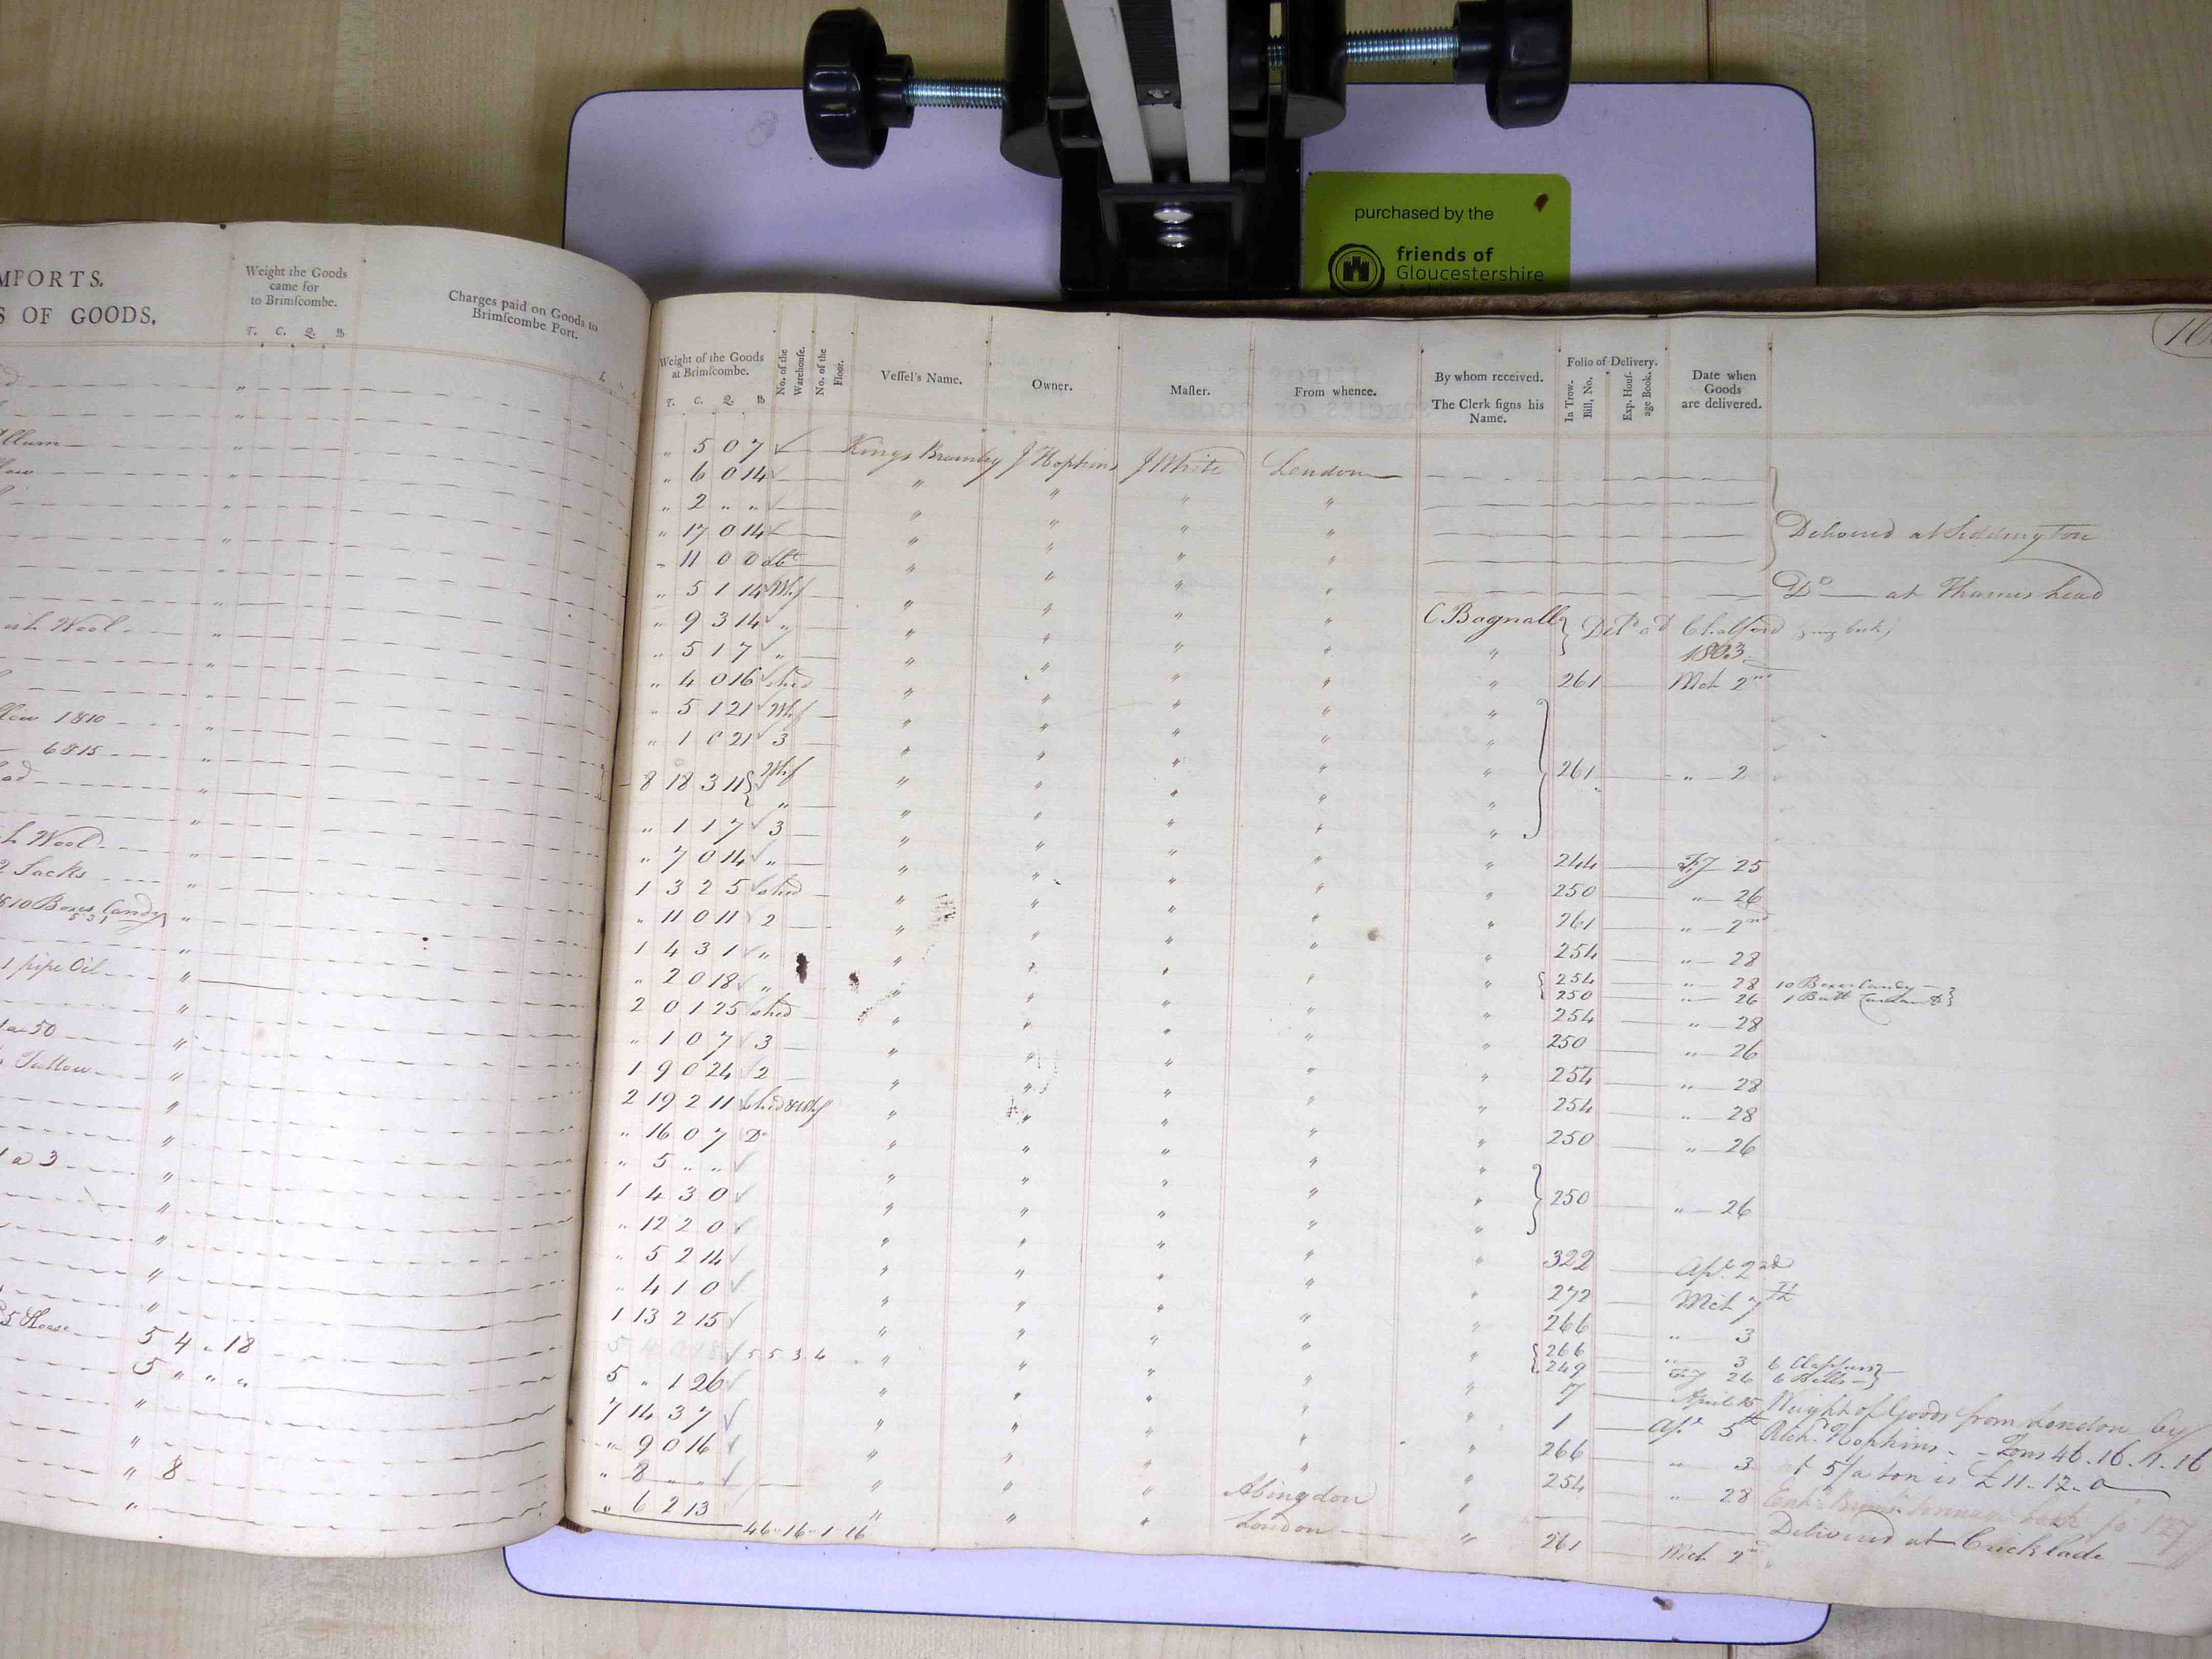 purchased by the
friends of
Gloucestershire
MPORTS.
S OF GOODS.
Weight the Goods
came for
to Brimſcombe.
T. C. Q. lb
Charges paid on Goods to
Brimſcombe Port.
Weight of the Goods
at Brimſcombe.
T. C. Q. lb
No. of the
Warehouſe.
No. of the
Floor.
Veſſel's Name.
Owner.
Maſter.
From whence.
By whom received.
The Clerk ſigns his
Name.
Folio of Delivery.
In Trow.
Bill, No.
Exp. Houſ-
age Book.
Date when
Goods
are delivered.
" 5 0 7 Kings Bromley J Hopkins J White London
" 6 0 14 " " " "
" 2 " " " " " "
" 17 0 14 " " " " Delivered at Siddington
" 11 0 0 " " " "
" 5 1 14 Whf " " " " Do at Thames head
ish Wool " 9 3 14 " " " " " C Bagnall Deld at Chalford
" 5 1 7 " " " " " " 1803
" 4 0 16 shed " " " " " 261 Mch 2nd
llow 1810 " 5 1 21 Whf " " " " "
6815 " 1 0 21 3 " " " " "
ad 8 18 3 11 Whf " " " " " 261 " 2
" 1 1 7 3 " " " " "
h Wool " 7 0 14 " " " " " " 244 Fy 25
2 Sacks 1 3 2 5 shed " " " " " 250 " 26
10 Boxes Candy " 11 0 11 2 " " " " " 261 " 2nd
5 3 1
1 4 3 1 " " " " " " 254 " 28
1 pipe Oil " 2 0 18 " " " " " " 254 " 28 10 Boxes Candy
250 " 26 1 Butt Currants
2 0 1 25 shed " " " " " 254 " 28
a 50 " 1 0 7 3 " " " " " 250 " 26
Tallow 1 9 0 24 2 " " " " " 254 " 28
2 19 2 11 shed & Whf " " " " " 254 " 28
" 16 0 7 Do " " " " " 250 " 26
1 a 3 " 5 " " " " " " "
1 4 3 0 " " " " " 250 " 26
" 12 2 0 " " " " "
" 5 2 14 " " " " " 322 Apl 2nd
" 4 1 0 " " " " " 272 Mch 7th
1 13 2 15 " " " " " 266 " 3
5 4 " 18 5 5 3 4 " " " " " 266 " 3
249 Fy 26 6 Bells
5 " " " 5 " 1 26 " " " " " 17 April 15 Weight of Goods from London by
7 14 3 7 " " " " " 1 Apl 5th Richd Hopkins Tons 46.16.1.16
" 9 0 16 " " " " " 266 " 3 at 5/ a ton is £11.12.0
" 8 " 8 " " " " " Abingdon " 254 " 28
" 6 2 13 " " " London Delivered at Cricklade
46 " 16 " 1 " 16 " 261 Mch 2nd